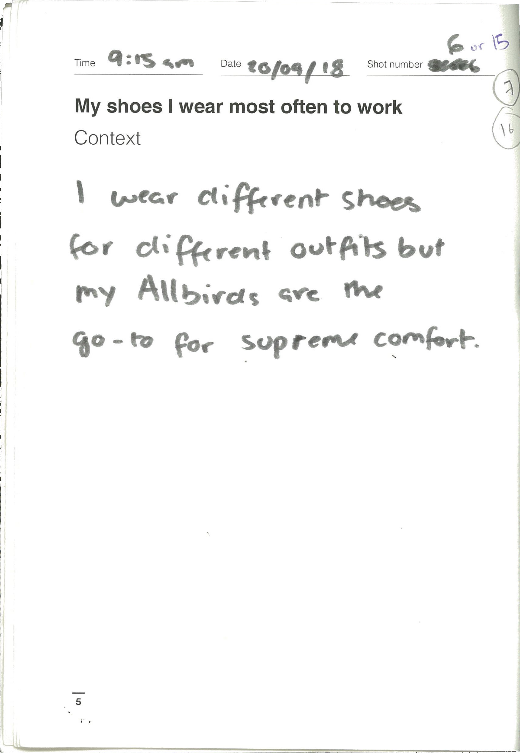 6 or 15
Time 9:15 am Date 20/09/18 Shot number
7
My shoes I wear most often to work
16
Context
I wear different shoes
for different outfits but
my Allbirds are the
go-to for supreme comfort.
5